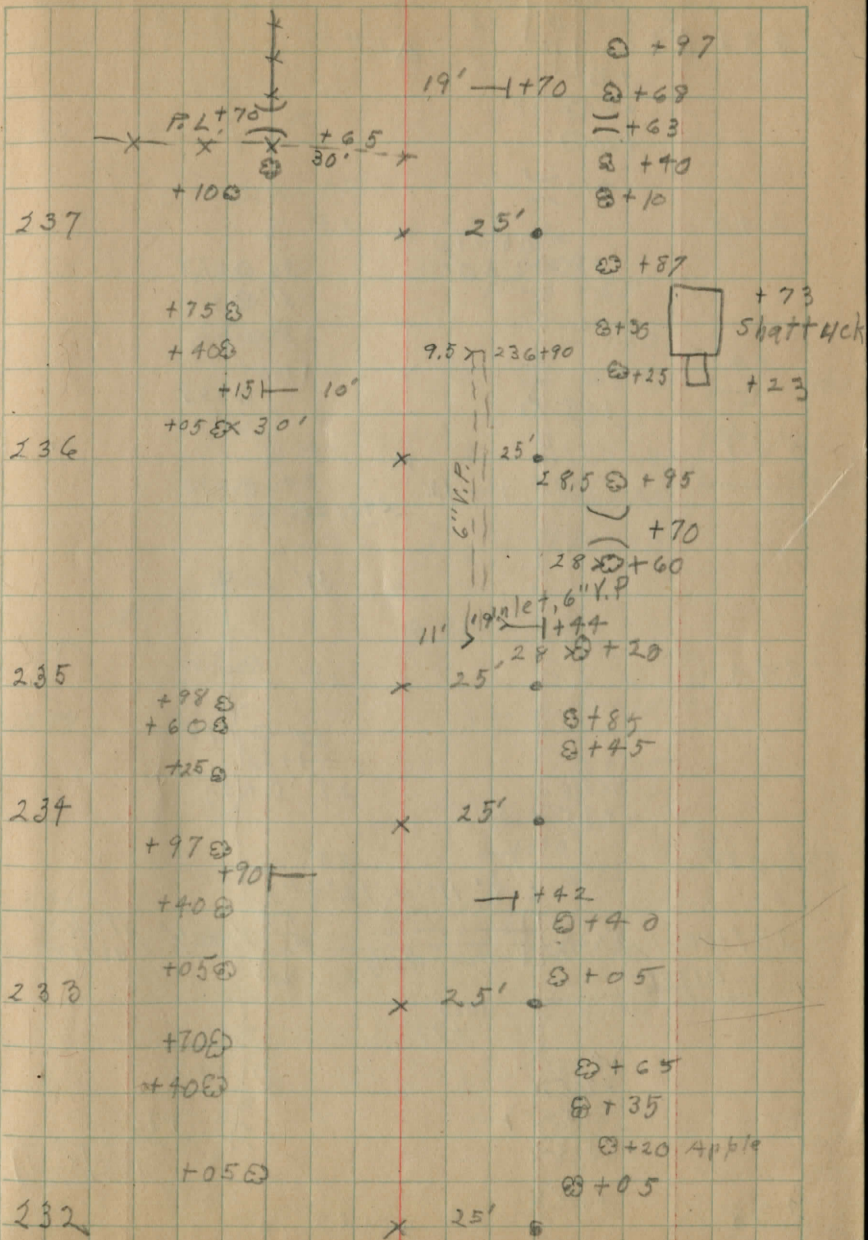 +97
19' +70 +68
P.L. +70 +63
+65
30' +40
+10 +10
237 25'
+87
+75 +73
+30 Shattuck
+40 9.5 236+90
+25 +23
+15 10'
+05 30'
236 25'
28.5 +95
6" V.P.
+70
28 +60
Inlet, 6" V.P
19' +44
11' 28 +20
235 25'
+98
+60 +85
+45
+25
234 25'
+97
+90
+42
+40 +40
+05 +05
233 25'
+70
+65
+40
+35
+20 Apple
+05
+05
232 25'